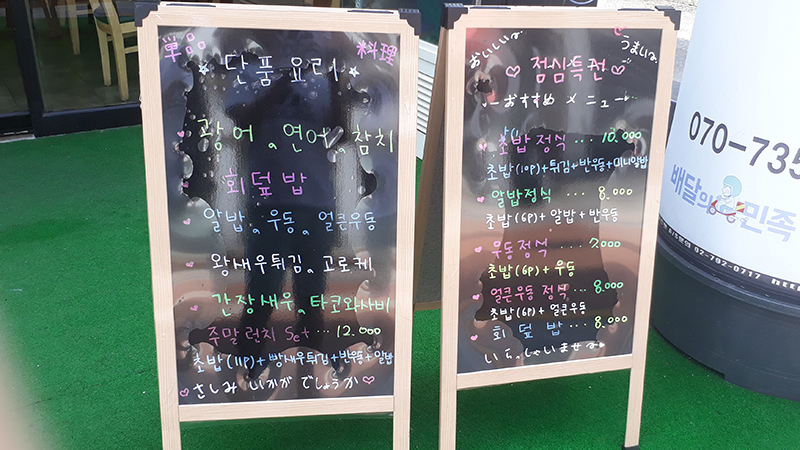 単品 料理
단품요리
광어 연어 참치
회덮밥
알밥 우동 얼큰우동
왕새우튀김 고로케
간장새우 타코와사비
주말런치 Set ... 12.000
초밥(11P)+빵새우튀김+반우동+알밥
さしみ いかが でしょうか
おいしいよ うまいよ
점심특선
おすすめ メニュー
초밥정식 ... 10.000
초밥(10P)+튀김+반우동+미니알밥
알밥정식 ... 8.000
초밥(6P)+알밥+반우동
우동정식 .... 7.000
초밥(6P)+우동
얼큰우동정식 ... 8.000
초밥(6P)+얼큰우동
회덮밥 ... 8.000
いらっしゃいませ
070-735
배달의민족
02-792-0717